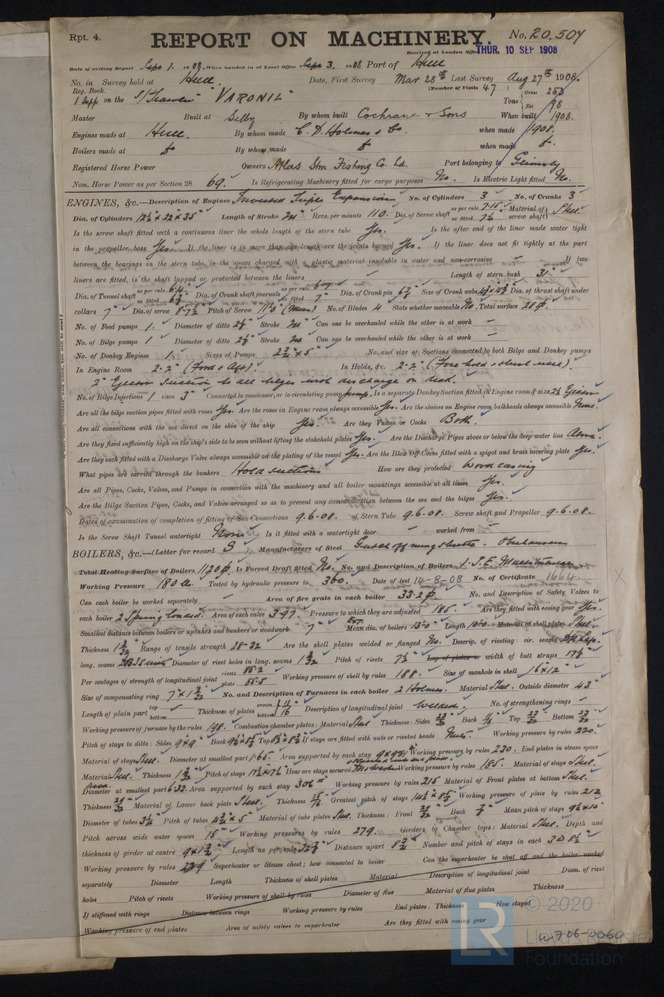 Rpt. 4. REPORT ON MACHINERY. No. 20,504
Received at London Office THUR. 10 SEP 1908
Date of writing Report Sept 1. 1908 When handed in at Local Office Sept 3. 1908 Port of Hull
No. in Survey held at Hull Date, First Survey Mar 28th Last Survey Aug 27th 1908
Reg. Book. (Number of Visits 47)
1 Supp on the S/Trawler "VARONIL" Tons Gross 253 Net 98
Master Built at Selby By whom built Cochrane & Sons When built 1908.
Engines made at Hull By whom made C. D. Holmes & Co when made 1908.
Boilers made at do By whom made do when made do
Registered Horse Power Owners Atlas Stm Fishing Co. Ld. Port belonging to Grimsby
Nom. Horse Power as per Section 28 69. Is Refrigerating Machinery fitted for cargo purposes No. Is Electric Light fitted No.
ENGINES, &c.—Description of Engines Inverted Triple Expansion No. of Cylinders 3 No. of Cranks 3
Dia. of Cylinders Length of Stroke 24" Revs. per minute 110. Dia. of Screw shaft as per rule 7.15 as fitted Material of screw shaft Steel
Is the screw shaft fitted with a continuous liner the whole length of the stern tube Yes. Is the after end of the liner made water tight
in the propeller boss Yes. If the liner is in more than one length are the joints burned Yes. If the liner does not fit tightly at the part
between the bearings in the stern tube, is the space charged with a plastic material insoluble in water and non-corrosive — If two
liners are fitted, is the shaft lapped or protected between the liners — Length of stern bush
Dia. of Tunnel shaft as per rule as fitted Dia. of Crank shaft journals as per rule as fitted 7" Dia. of Crank pin Size of Crank webs Dia. of thrust shaft under
collars 7" Dia. of screw Pitch of Screw 11'0" (Mean) No. of Blades 4 State whether moveable No. Total surface 28 ft.
No. of Feed pumps 1. Diameter of ditto Stroke 24" Can one be overhauled while the other is at work —
No. of Bilge pumps 1 Diameter of ditto Stroke 24" Can one be overhauled while the other is at work —
No. of Donkey Engines 1. Sizes of Pumps No. and size of Suctions connected to both Bilge and Donkey pumps
In Engine Room 2-2" (Ford & Aft) In Holds, &c. 2-2" (Fore hold & slush well).
2" Ejector Suction to all bilges with discharge on deck.
No. of Bilge Injections 1 sizes 3" Connected to condenser, or to circulating pump pump Is a separate Donkey Suction fitted in Engine room & size Ejector
Are all the bilge suction pipes fitted with roses Yes. Are the roses in Engine room always accessible Yes. Are the sluices on Engine room bulkheads always accessible None.
Are all connections with the sea direct on the skin of the ship Yes. Are they Valves or Cocks Both.
Are they fixed sufficiently high on the ship's side to be seen without lifting the stokehold plates Yes. Are the Discharge Pipes above or below the deep water line Above.
Are they each fitted with a Discharge Valve always accessible on the plating of the vessel Yes. Are the Blow Off Cocks fitted with a spigot and brass covering plate Yes.
What pipes are carried through the bunkers Hold suction How are they protected Wood casing
Are all Pipes, Cocks, Valves, and Pumps in connection with the machinery and all boiler mountings accessible at all times Yes.
Are the Bilge Suction Pipes, Cocks, and Valves arranged so as to prevent any communication between the sea and the bilges Yes.
Dates of examination of completion of fitting of Sea Connections 9.6.08. of Stern Tube 9.6.08. Screw shaft and Propeller 9.6.08.
Is the Screw Shaft Tunnel watertight None Is it fitted with a watertight door — worked from —
BOILERS, &c.—(Letter for record S) Manufacturers of Steel Gutehoffnungshutte. Oberhausen
Total Heating Surface of Boilers 1120 ft. Is Forced Draft fitted No. No. and Description of Boilers 1. S.E. Multitubular
Working Pressure 180 lb. Tested by hydraulic pressure to 360. Date of test 14-8-08 No. of Certificate 1664
Can each boiler be worked separately — Area of fire grate in each boiler 33.2 ft No. and Description of Safety Valves to
each boiler 2 Spring loaded. Area of each valve 3.97 Pressure to which they are adjusted 185. Are they fitted with easing gear Yes.
Smallest distance between boilers or uptakes and bunkers or woodwork 7" Mean dia. of boilers 13'0" Length 10'0" Material of shell plates Steel.
Thickness Range of tensile strength 28-32 Are the shell plates welded or flanged No. Descrip. of riveting: cir. seams
long. seams Diameter of rivet holes in long. seams Pitch of rivets width of butt straps
Per centages of strength of longitudinal joint rivets 85.2 plate 85.8 Working pressure of shell by rules 188. Size of manhole in shell 16"x12"
Size of compensating ring No. and Description of Furnaces in each boiler 2 Holmes. Material Steel. Outside diameter 43"
Length of plain part top bottom Thickness of plates crown bottom Description of longitudinal joint welded. No. of strengthening rings —
Working pressure of furnace by the rules 198. Combustion chamber plates: Material Steel Thickness: Sides Back Top Bottom
Pitch of stays to ditto: Sides 9x9" Back Top If stays are fitted with nuts or riveted heads Nuts. Working pressure by rules 220.
Material of stays Steel. Diameter at smallest part 1.65. Area supported by each stay Working pressure by rules 230. End plates in steam space
Material Steel. Thickness Pitch of stays How are stays secured Working pressure by rules 185. Material of stays Steel.
Diameter at smallest part Area supported by each stay 306" Working pressure by rules 215 Material of Front plates at bottom Steel.
Thickness Material of Lower back plate Steel. Thickness Greatest pitch of stays Working pressure of plate by rules 212
Diameter of tubes Pitch of tubes Material of tube plates Steel. Thickness: Front Back Mean pitch of stays
Pitch across wide water spaces 15" Working pressures by rules 279. Girders to Chamber tops: Material Steel. Depth and
thickness of girder at centre Length as per rule Distance apart Number and pitch of stays in each
Working pressure by rules Superheater or Steam chest; how connected to boiler Can the superheater be shut off and the boiler worked
separately Diameter Length Thickness of shell plates Material Description of longitudinal joint Diam. of rivet
holes Pitch of rivets Working pressure of shell by rules Diameter of flue Material of flue plates Thickness
If stiffened with rings Distance between rings Working pressure by rules End plates: Thickness How stayed
Working pressure of end plates Area of safety valves to superheater Are they fitted with easing gear
© 2020
Lloyd's Register
Foundation
W706-0060